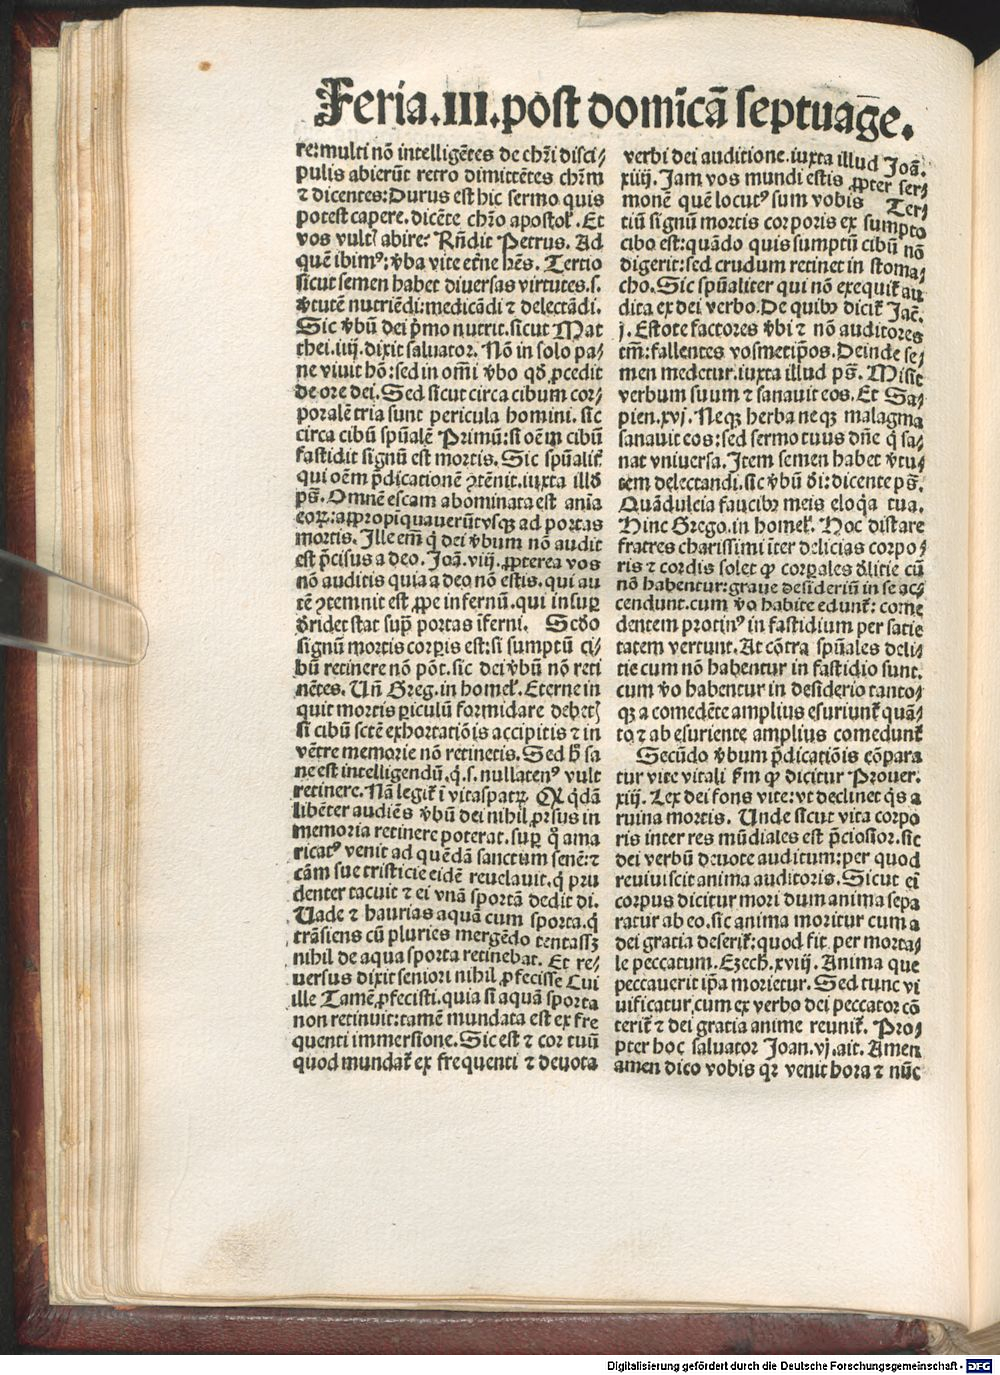 Feria.III.post domīcā septuaḡe.
re:multi nō intelligētes de chr̄i disci/
pulis abierūt retro dimittētes chr̄m
⁊ dicentes:Durus est hic sermo quis
potest capere.dicēte chr̄o apostoł. Et
vos vultꝭ abire? Rn̄dit Petrus. Ad
quē ibimꝰ: v̄ba vite etn̄e hēs. Tertio
sicut semen habet diuersas virtutes.s.
v̄tutē nutriēdi:medicādi ⁊ delectādi.
Sic v̄bū dei p̄mo nutrit.sicut Mat
thei.iiij.dixit saluator. Nō in solo pa/
ne viuit hō:sed in om̄i v̄bo qd̄ ꝓcedit
de ore dei. Sed sicut circa cibum cor/
poralē tria sunt pericula homini. sic
circa cibū spūalē Primū:si oēm cibū
fastidit signū est mortis. Sic spūalit᷑
qui oēm p̄dicationē ꝯtēnit.iuxta illd̄
ps̄. Omnē escam abominata est aīa
eoꝝ:⁊ appropīquauerūt vsqꝫ ad portas
mortis. Ille em̄ q̄ dei v̄bum nō audit
est p̄cisus a deo. Joā.viij.ꝓpterea vos
nō auditis quia a deo nō estis.qui au
tē ꝯtemnit est ꝓpe infernū.qui insuꝑ
d̄ridet stat sup̄ portas īferni. Scd̄o
signū mortis corꝑis est:si sumptū ci/
bū retinere nō pōt.sic dei v̄bū nō reti
nētes. Un̄ Greg.in homeł. Eterne in
quit mortis ꝑiculū formidare debetꝭ
si cibū sctē exhortatiōis accipitis ⁊ in
vētre memorie nō retinetis. Sed h̄ sa
ne est intelligendū.q̄.s.nullatenꝰ vult
retinere. Nā legit᷑ ī vitaspatꝝ. Qꝙ q̄dā
libēter audiēs v̄bū dei nihil ꝓrsus in
memoria retinere poterat.suꝑ qō ama
ricatꝰ venit ad quēdā sanctum senē:⁊
cām sue tristicie eidē reuelauit.q̄ pru
denter tacuit ⁊ ei vnā sportā dedit di.
Uade ⁊ haurias aquā cum sporta.q̄
trāsiens cū pluries mergēdo tentassꝫ
nihil de aqua sporta retinebat. Et re/
uersus dixit seniori nihil ꝓfecisse Cui
ille Tamē ꝓfecisti.quia si aquā sporta
non retinuit:tamē mundata est ex fre
quenti immersione.Sic est ⁊ cor tuū
quod mundat᷑ ex frequenti ⁊ deuota
verbi dei auditione.iuxta illud Joā.
xiiij. Jam vos mundi estis ꝓpter ser/
monē quē locutꝰ sum vobis Ter/
tiū signū mortis corporis ex sumpto
cibo est:quādo quis sumptū cibū nō
digerit:sed crudum retinet in stoma/
cho. Sic spūaliter qui nō exequit᷑ au
dita ex dei verbo.De quibꝰ dicit᷑ Jac̄.
j. Estote factores v̄bi ⁊ nō auditores
tm̄:fallentes vosmetip̄os.Deinde se/
men medetur.iuxta illud ps̄. Misit
verbum suum ⁊ sanauit eos. Et Sa/
pien.xvj. Neqꝫ herba neqꝫ malagma
sanauit eos:sed sermo tuus dn̄e q̄ sa/
nat vniuersa. Item semen habet v̄tu/
tem delectandi.sic v̄bū d̄i:dicente ps̄.
Quā dulcia faucibꝰ meis eloq̄a tua.
Hinc Grego.in homeł. Hoc distare
fratres charissimi īter delicias corpo/
ris ⁊ cordis solet ꝙ corꝑales d̄litie cū
nō habentur:graue desideriū in se ac/
cendunt.cum v̄o habite edunt᷑: come
dentem protinꝰ in fastidium per satie
tatem vertunt. At cōtra spūales deli/
tie cum nō habentur in fastidio sunt.
cum v̄o habentur in desiderio tanto/
qꝫ a comedēte amplius esuriunt᷑ quā/
to ⁊ ab esuriente amplius comedunt᷑
Secūdo v̄bum p̄dicatiōis cōpara
tur vite vitali fm̄ ꝙ dicitur Prouer.
xiij. Lex dei fons vite:vt declinet q̄s a
ruina mortis. Unde sicut vita corpo
ris inter res mūdiales est p̄ciosior.sic
dei verbū deuote auditum:per quod
reuiuiscit anima auditoris. Sicut ei᷑
corpus dicitur mori dum anima sepa
ratur ab eo.sic anima moritur cum a
dei gratia deserit᷑:quod fit per morta/
le peccatum. Ezech.xviij. Anima que
peccauerit ip̄a morietur. Sed tunc vi
uificatur,cum ex verbo dei peccator cō
terit᷑ ⁊ dei gratia anime reunit᷑. Pro/
pter hoc saluator Joan.vj.ait. Amen
amen dico vobis qꝛ venit hora ⁊ nūc
Digitalisierung gefördert durch die Deutsche Forschungsgemeinschaft - DFG